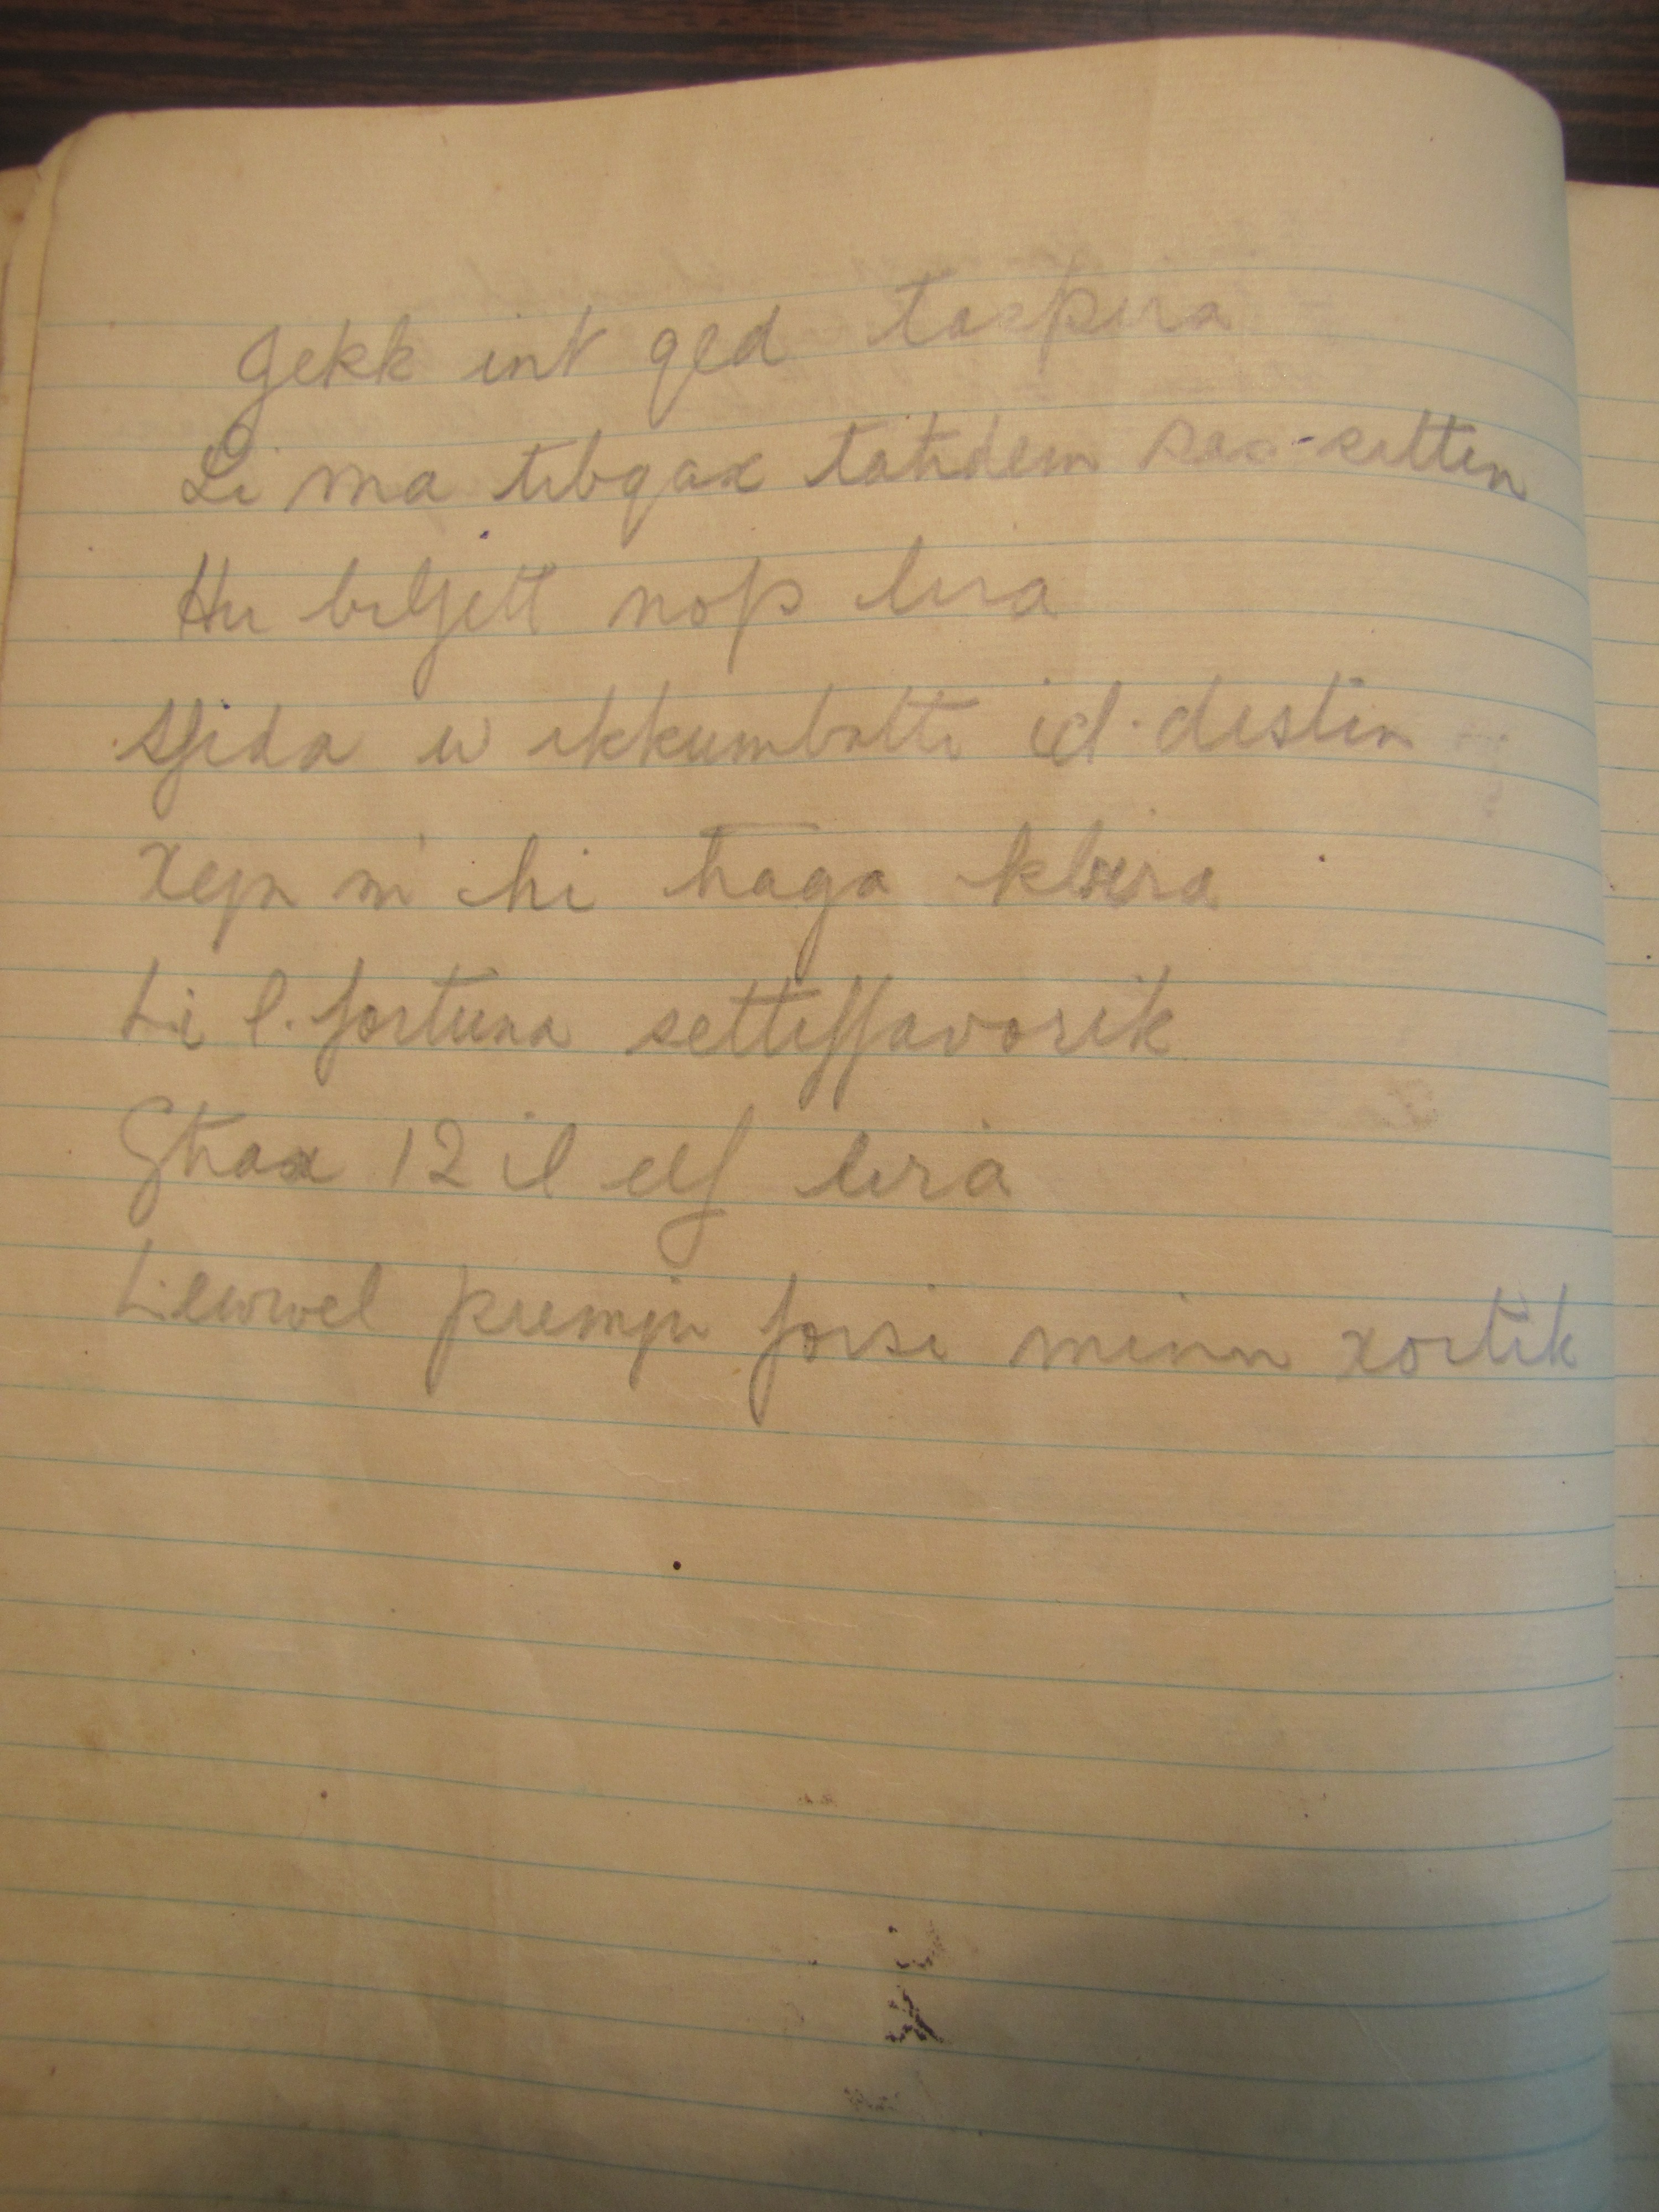 Jekk int qed taspira
Li ma tibqax taħdem sas-sittin
Ħu biljett nofs lira
Sfida u ikkumbatti id-destin
Xejn m' hi ħaga kbira
Li l-fortuna settiffavorik
Għax 12 il elf lira
L-ewwel premju forsi minn xortik